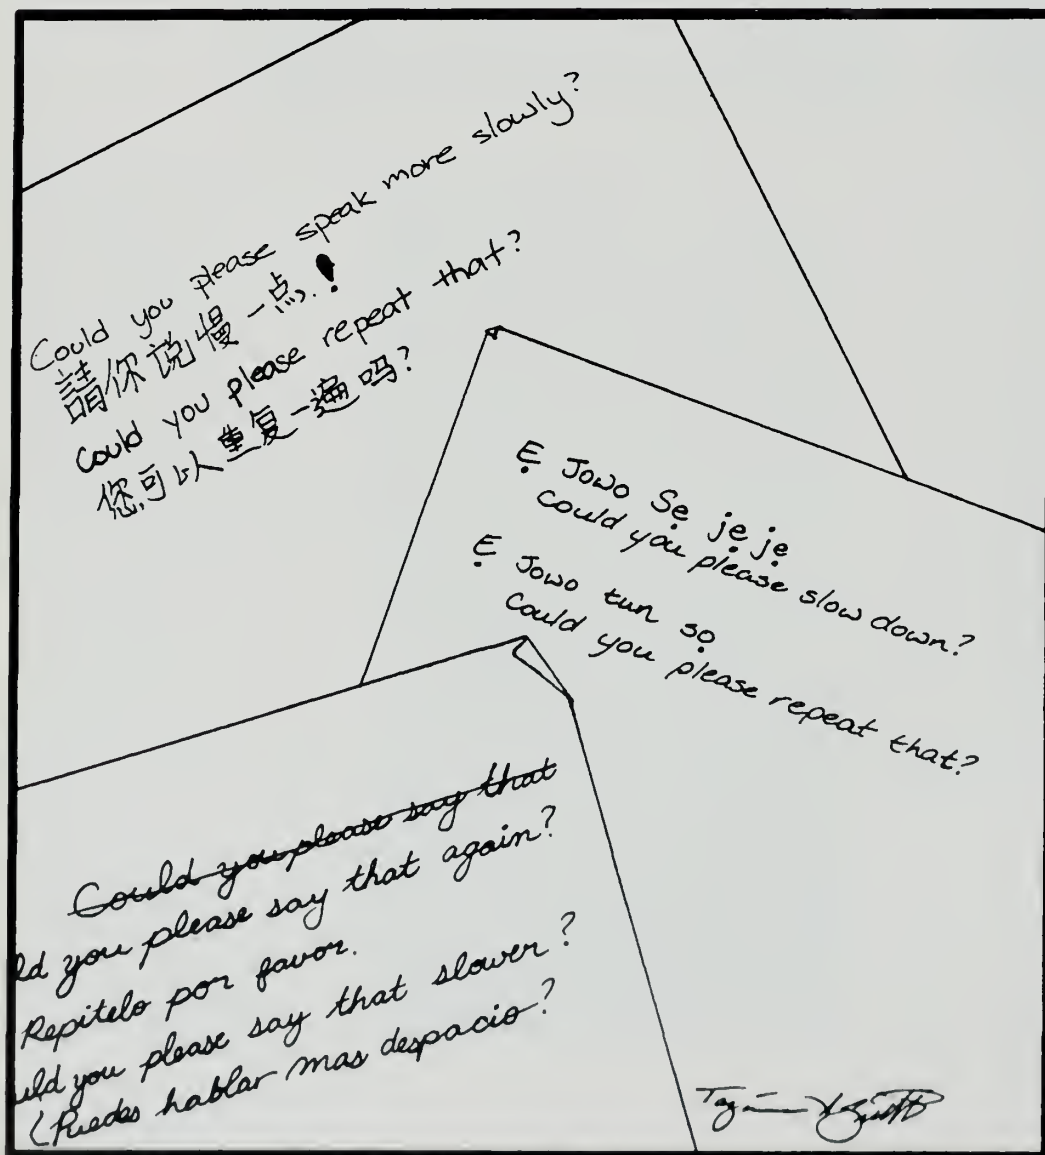 Could you please speak more slowly?
請你说慢一点!
Could you please repeat that?
您可以重复一遍吗?
Ẹ Jowo Sẹ jẹ jẹ
could you please slow down?
Ẹ Jowo tun sọ
could you please repeat that?
Could you please say that
ld you please say that again?
Repitelo por favor.
uld you please say that slower?
¿Puedes hablar mas despacio?